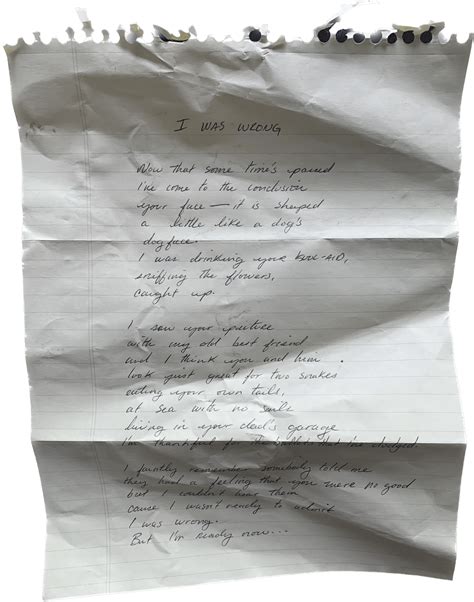 I WAS WRONG
Now that some time's passed
I've come to the conclusion
your face — it is shaped
a little like a dog's
dogface.
I was drinking your KOOL-AID,
sniffing the flowers,
caught up.
I saw your picture
with my old best friend
and I think you and him
look just great for two snakes
eating your own tails,
at sea with no smile
living in your dad's garage
I'm thankful for the bullets that I've dodged.
I faintly remember somebody told me
they had a feeling that you were no good
but I couldn't hear them
cause I wasn't ready to admit
I was wrong.
But I'm ready now...